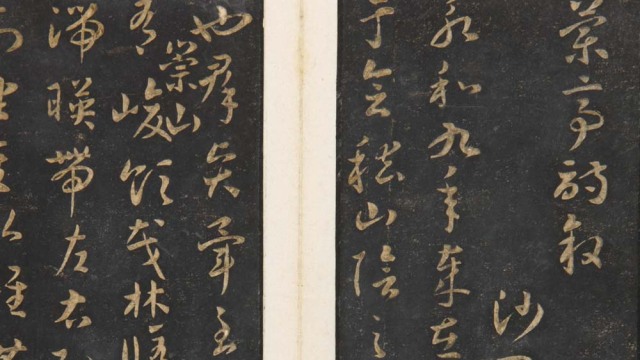 蘭亭詩叙
沙
永和九年歲在
于會稽山陰之
也群賢畢至
有崇山峻領茂林脩
湍暎帶左右